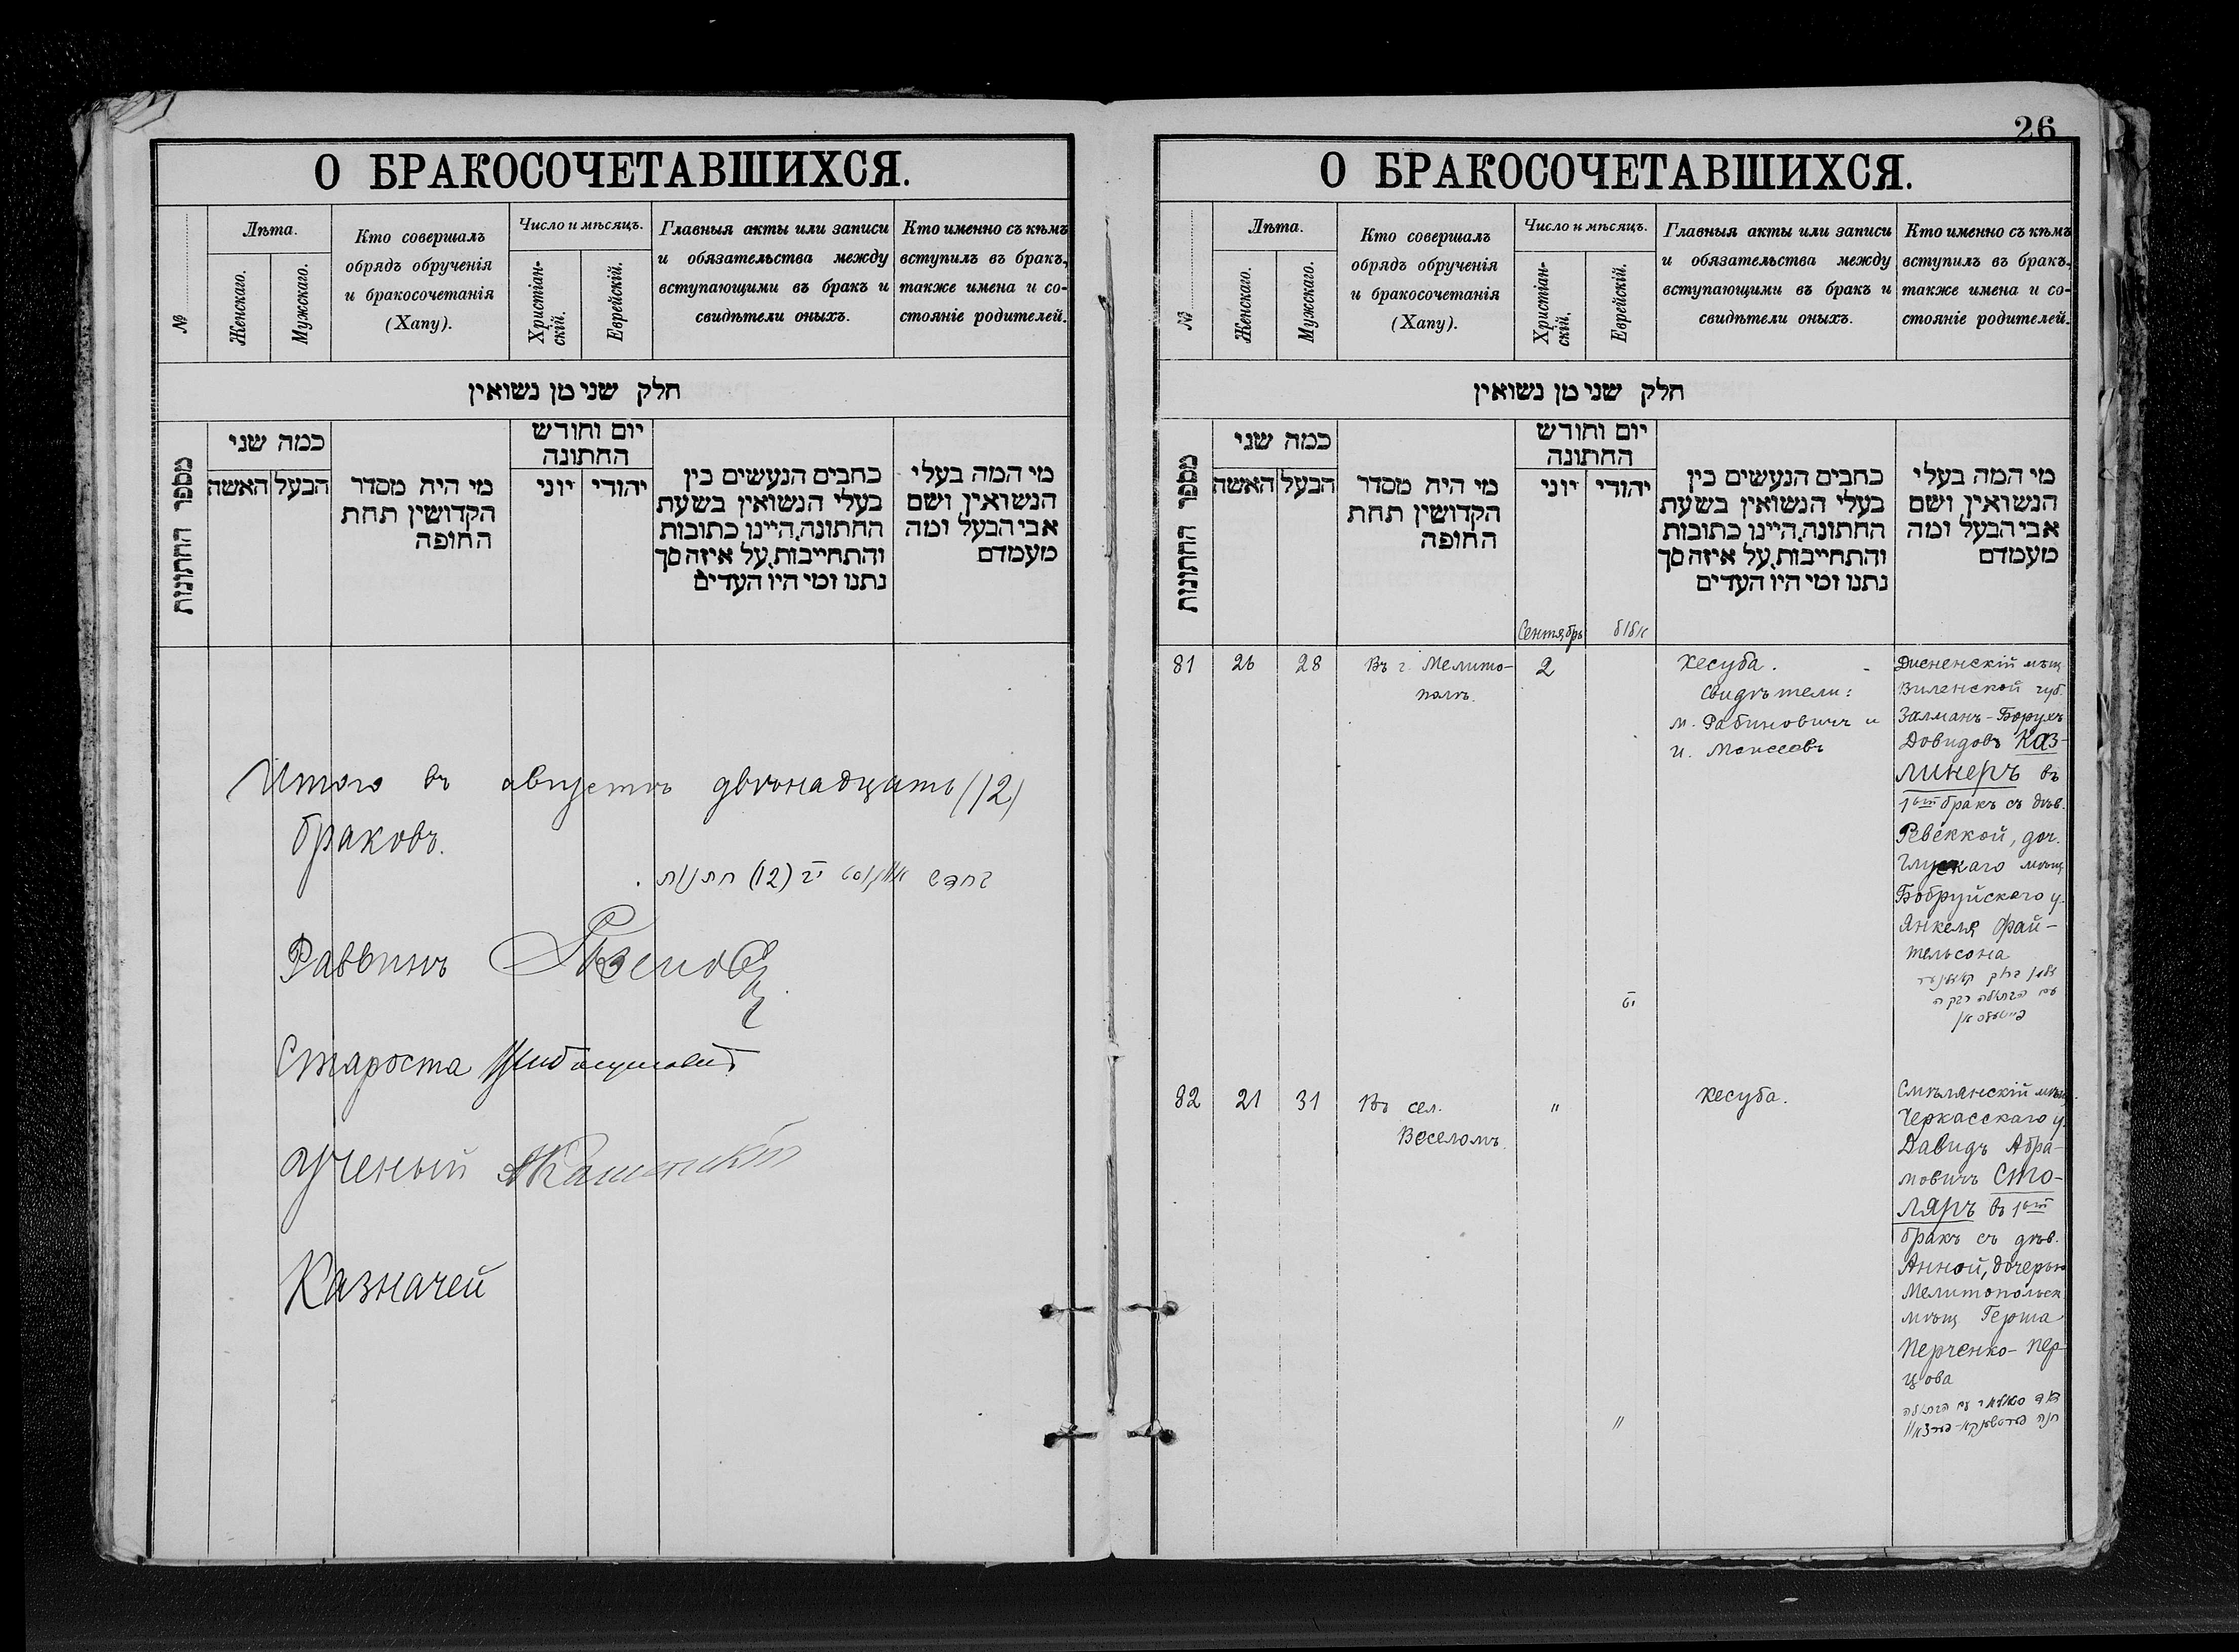 О БРАКОСОЧЕТАВШИХСЯ.
№
Лѣта.
Женскаго.
Мужскаго.
Кто совершалъ
обрядъ обрученія
и бракосочетанія
(Хапу).
Число и мѣсяцъ.
Христіан-
скій.
Еврейскій.
Главныя акты или записи
и обязательства между
вступающими въ бракъ и
свидѣтели оныхъ.
Кто именно съ кѣмъ
вступилъ въ бракъ,
также имена и со-
стояніе родителей.
חלק שני מן נשואין
מספר החתונות
כמה שני
האשה
הבעל
מי היה מסדר
הקדושין תחת
החופה
יום וחודש
החתונה
יוני
יהודי
כתבים הנעשים בין
בעלי הנשואין בשעת
החתונה, היינו כתובות
והתחייבות, על איזה סך
נתנו ומי היו העדים
מי המה בעלי
הנשואין ושם
אבי הבעל ומה
מעמדם
Итого въ августѣ двѣнадцать (12)
браковъ.
בחדש אויגוסט י״ב (12) חתונות.
Раввинъ
Староста
Ученый
Казначей
26
О БРАКОСОЧЕТАВШИХСЯ.
№
Лѣта.
Женскаго.
Мужскаго.
Кто совершалъ
обрядъ обрученія
и бракосочетанія
(Хапу).
Число и мѣсяцъ.
Христіан-
скій.
Еврейскій.
Главныя акты или записи
и обязательства между
вступающими въ бракъ и
свидѣтели оныхъ.
Кто именно съ кѣмъ
вступилъ въ бракъ,
также имена и со-
стояніе родителей.
חלק שני מן נשואין
מספר החתונות
כמה שני
האשה
הבעל
מי היה מסדר
הקדושין תחת
החופה
יום וחודש
החתונה
יוני
יהודי
כתבים הנעשים בין
בעלי הנשואין בשעת
החתונה, היינו כתובות
והתחייבות, על איזה סך
נתנו ומי היו העדים
מי המה בעלי
הנשואין ושם
אבי הבעל ומה
מעמדם
Сентябрь
אלול
81
26
28
Въ г. Мелито-
полѣ.
2
Кесуба.
Свидѣтели:
М. Рабиновичъ и
И. Моисеевъ
Дисненскій мѣщ.
Виленской губ.
Залманъ-Борухъ
Довидовъ Каз-
линеръ въ
1ый бракъ съ дѣв.
Ревеккой, доч.
Глускаго мѣщ.
Бобруйскаго у.
Янкеля Фай-
тельсона
זלמן ברוך
עם הבתולה רבקה
פייטעלסאן
יט
82
21
31
Въ сел.
Веселомъ.
"
Кесуба.
Смѣлянскій мѣщ.
Черкасскаго у.
Давидъ Абра-
мовичъ Сто-
ляръ въ 1ый
бракъ съ дѣв.
Анной, дочерью
Мелитопольск.
мѣщ. Герша
Перченко-Пер-
цова
דוד סטאליאר עם הבתולה
חנה פערטשענקא-פערצאוו
"